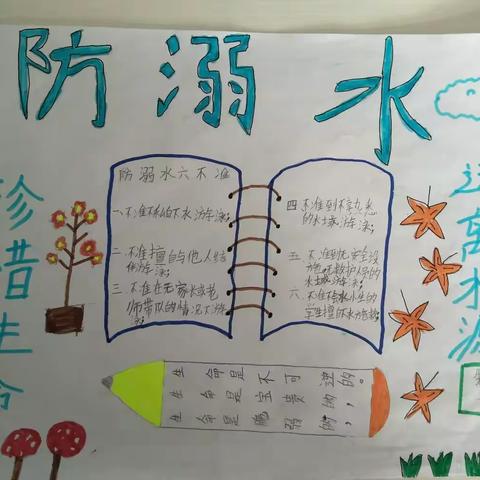 防溺水
珍惜生命
远离水源
防溺水六不准
一、不准私自下水游泳;
二、不准擅自与他人结
伴游泳;
三、不准在无家长或老
师带队的情况下游
泳;
四、不准到不熟悉
的水域游泳;
五、不准到无安全设
施、无救护人员的
水域游泳;
六、不准不会水性的
学生擅自下水施救;
生命是不可逆的。
生命是宝贵的,
生命是脆弱的,